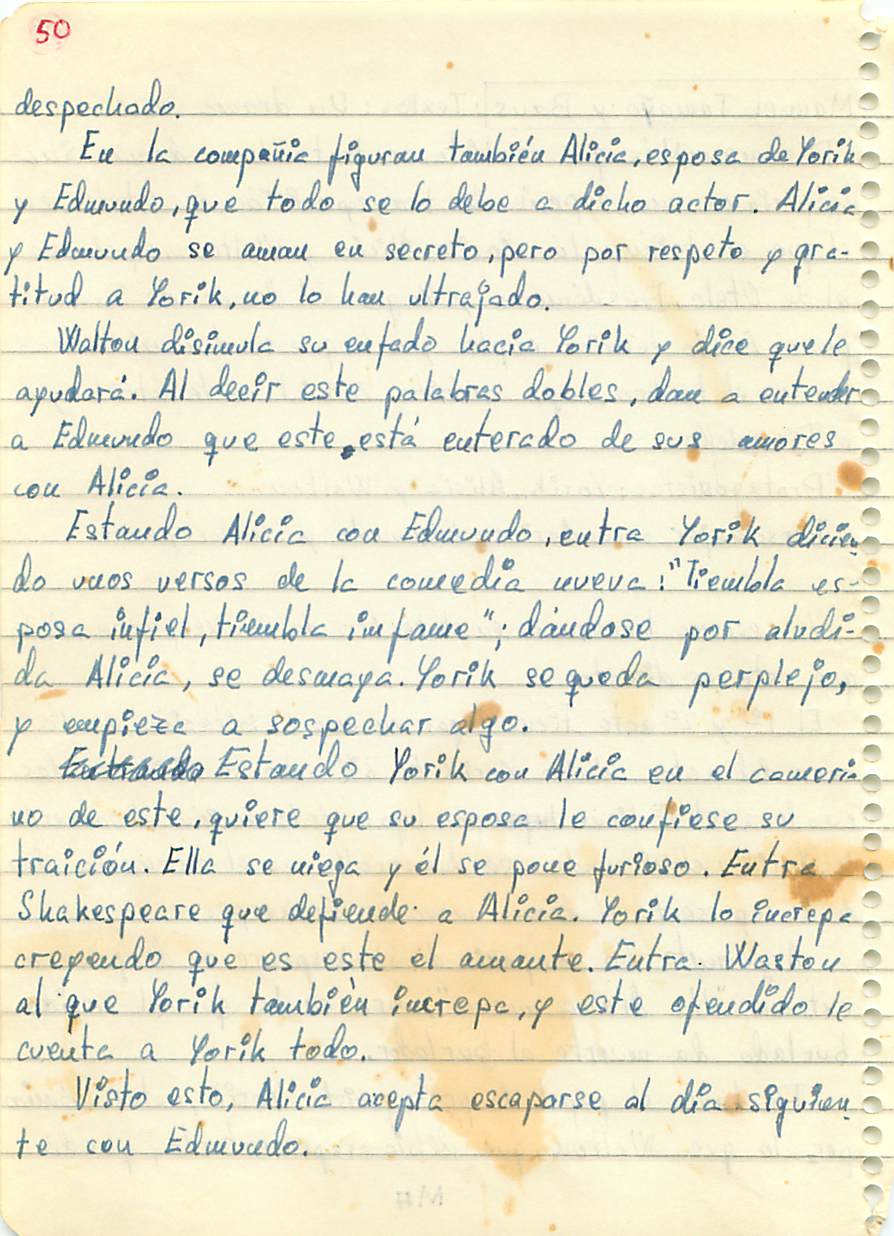 50
despechado.
En la compañia figuran también Alicia, esposa de Yorik
y Edmundo, que todo se lo debe a dicho actor. Alicia
y Edmundo se aman en secreto, pero por respeto y gra-
titud a Yorik, no lo han ultrajado.
Walton disimula su enfado hacia Yorik y dice que le
ayudará. Al decir este palabras dobles, dan a entender
a Edmundo que este está enterado de sus amores
con Alicia.
Estando Alicia con Edmundo, entra Yorik dicien
do unos versos de la comedia nueva: "Tiembla es-
posa infiel, tiembla infame"; dándose por aludi-
da Alicia, se desmaya. Yorik se queda perplejo,
y empieza a sospechar algo.
Entrando Estando Yorik con Alicia en el cameri-
no de este, quiere que su esposa le confiese su
traición. Ella se niega y él se pone furioso. Entra
Shakespeare que defiende a Alicia. Yorik lo increpa
creyendo que es este el amante. Entra Waston
al que Yorik también increpa, y este ofendido le
cuenta a Yorik todo.
Visto esto, Alicia acepta escaparse al día siguien
te con Edmundo.